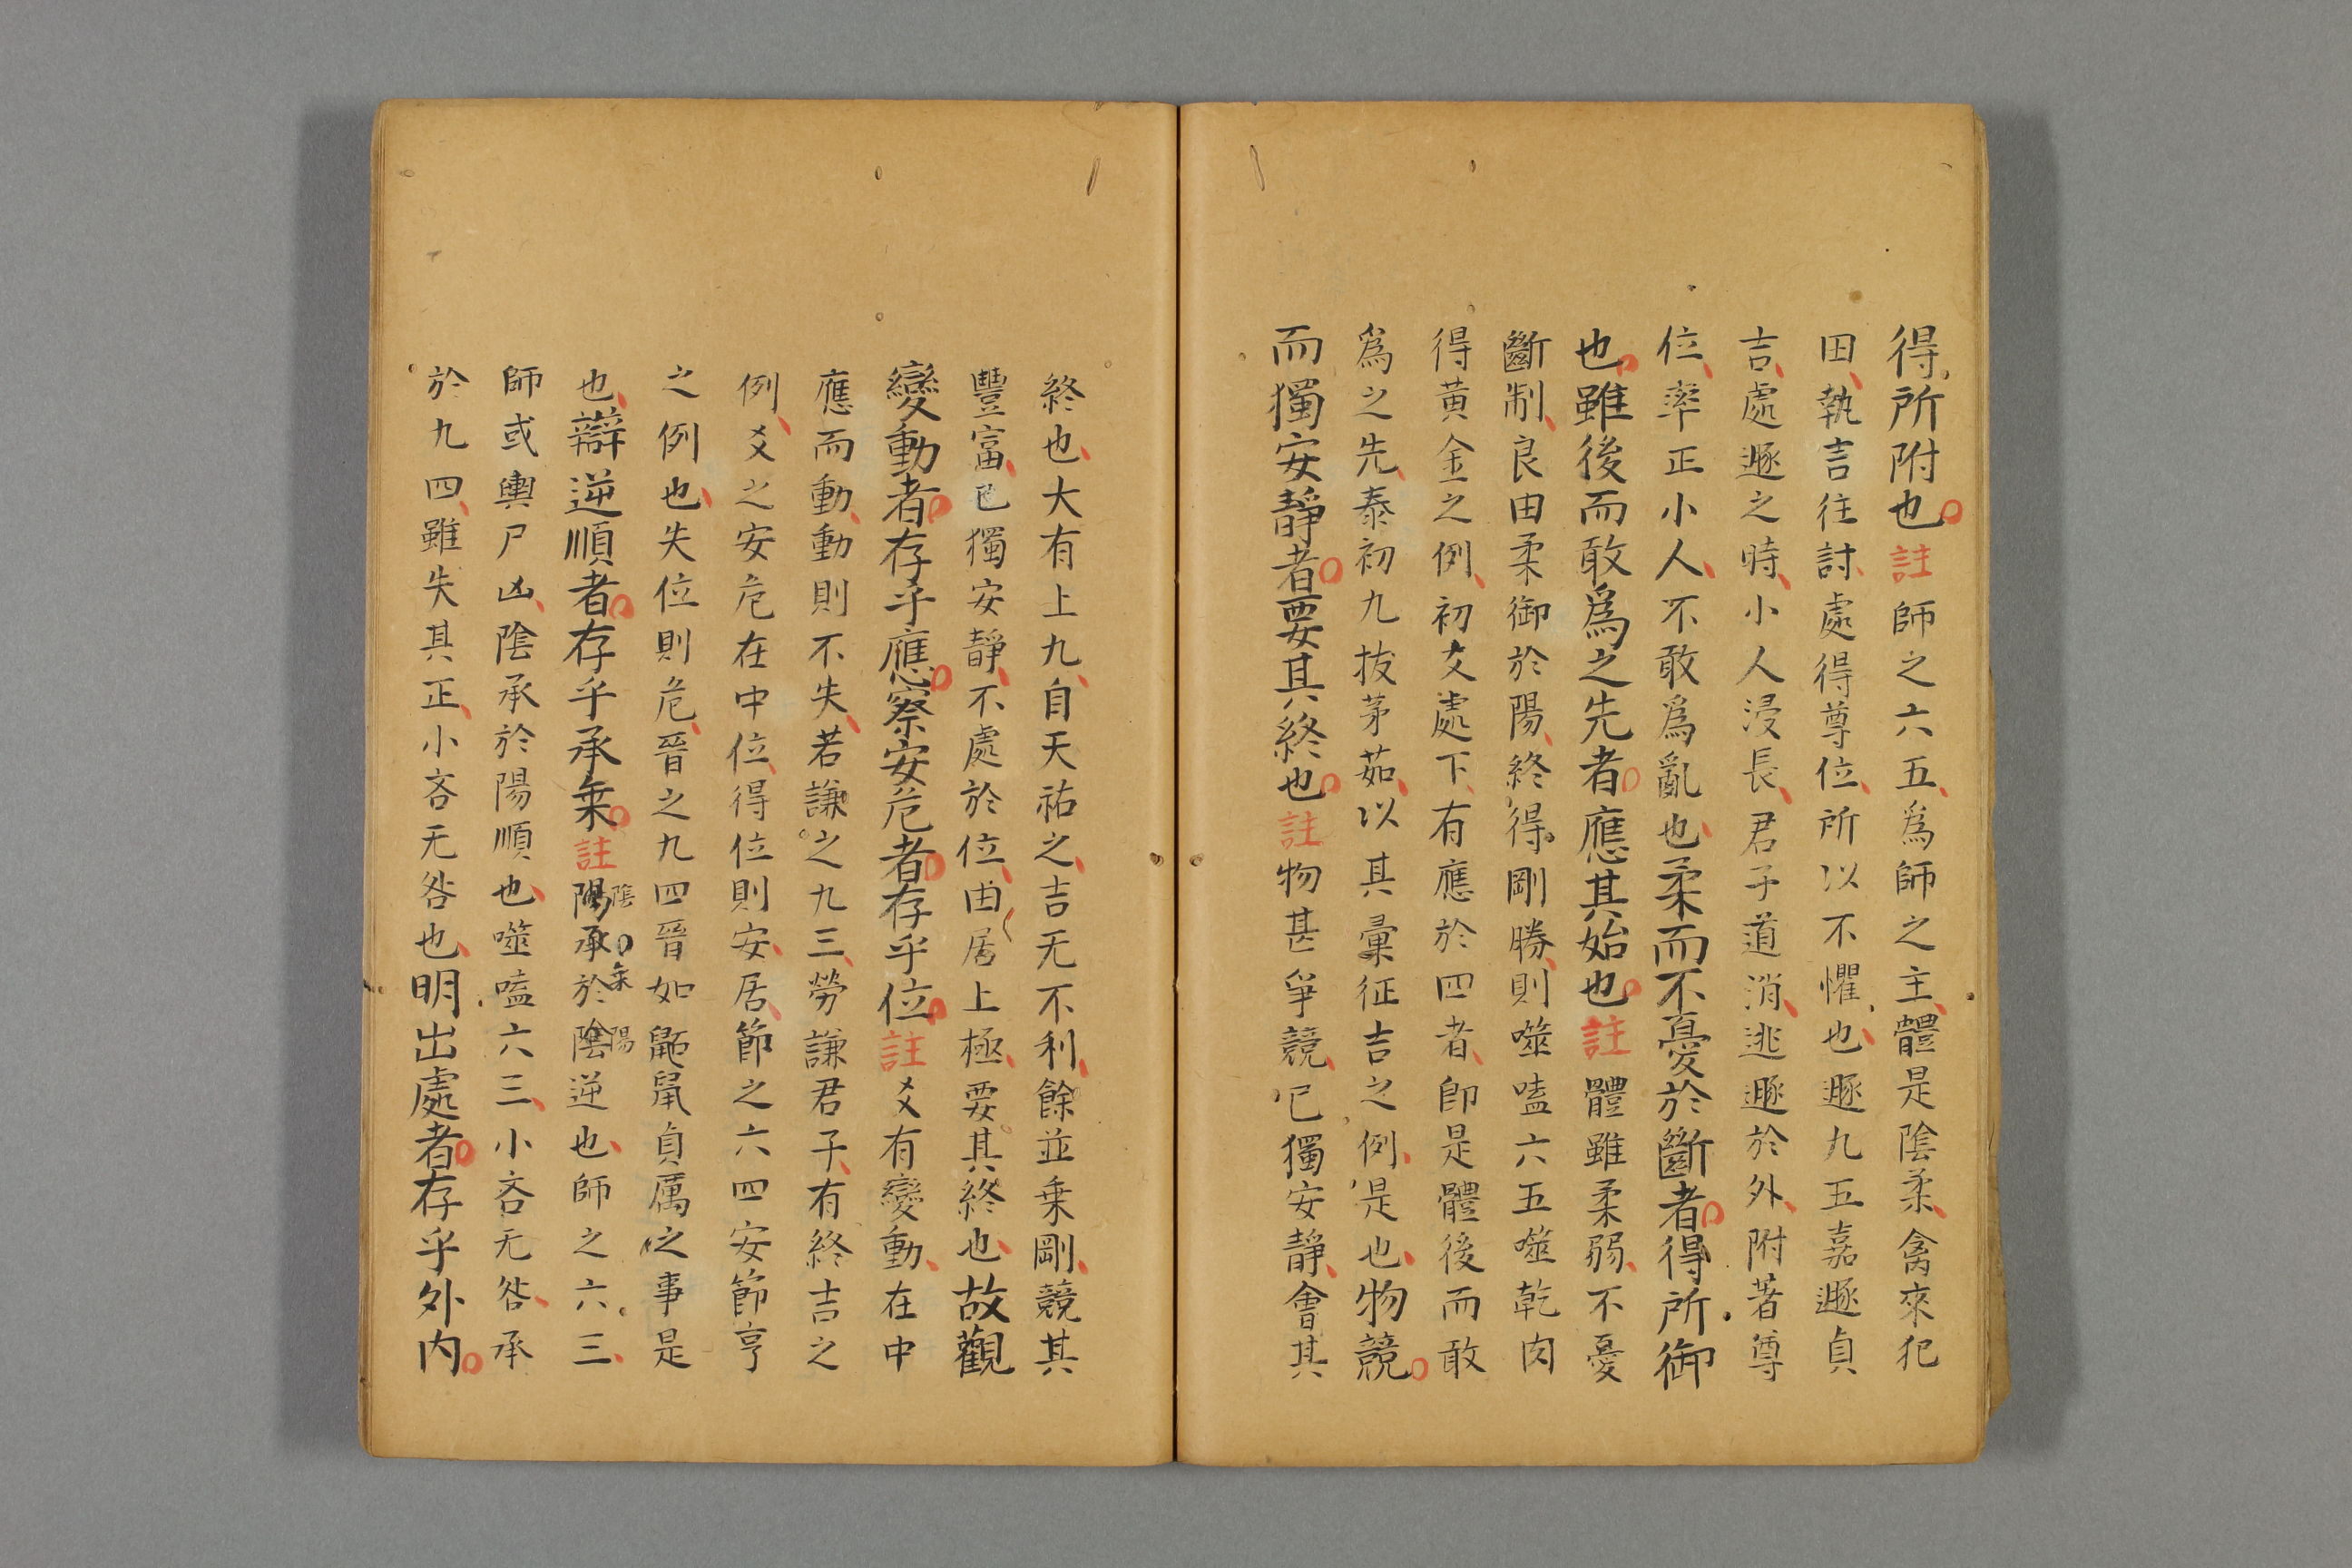 得所附也註師之六五爲師之主體是陰柔禽來犯
田執言往討處得尊位所以不懼也遯九五嘉遯貞
吉處遯之時小人浸長君子道消逃遯於外附著尊
位率正小人不敢爲亂也柔而不憂於斷者得所御
也雖後而敢爲之先者應其始也註體雖柔弱不憂
斷制良由柔御於陽終得剛勝則噬嗑六五噬乾肉
得黄金之例初爻處下有應於四者即是體後而敢
爲之先泰初九拔茅茹以其彙征吉之例是也物競
而獨安靜者要其終也註物甚爭競已獨安靜會其
終也大有上九自天祐之吉无不利餘並乗剛競其
豐富已獨安靜不處於位由居上極要其終也故觀
變動者存乎應察安危者存乎位註爻有變動在中
應而動動則不失若謙之九三勞謙君子有終吉之
例爻之安危在中位得位則安居節之六四安節亨
之例也失位則危晉之九四晉如鼫鼠貞厲之事是
也辯逆順者存乎承乗註陽承於陰逆也師之六三
陰乗陽
師或輿尸凶陰承於陽順也噬嗑六三小吝无咎承
於九四雖失其正小吝无咎也明出處者存乎外内